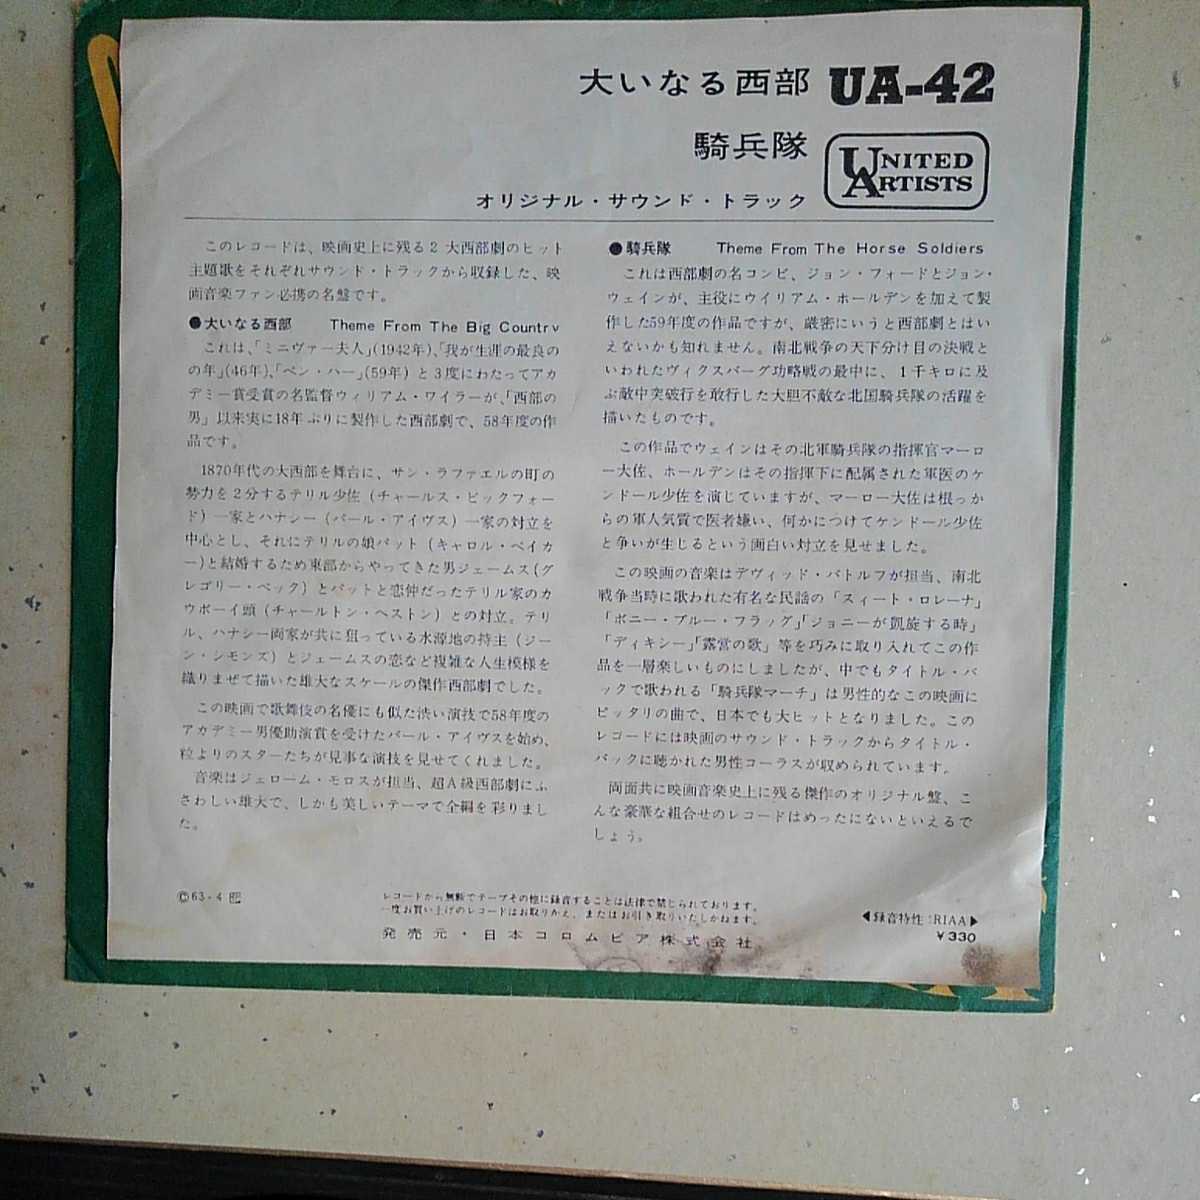 大いなる西部 UA-42
騎兵隊
UNITED
ARTISTS
オリジナル・サウンド・トラック
このレコードは、映画史上に残る2大西部劇のヒット
主題歌をそれぞれサウンド・トラックから収録した、映
画音楽ファン必携の名盤です。
●大いなる西部 Theme From The Big Country
これは、「ミニヴァー夫人」(1942年)、「我が生涯の最良の
の年」(46年)、「ベン・ハー」(59年)と3度にわたってアカ
デミー賞受賞の名監督ウィリアム・ワイラーが、「西部の
男」以来実に18年ぶりに製作した西部劇で、58年度の作
品です。
1870年代の大西部を舞台に、サン・ラファエルの町の
勢力を2分するテリル少佐(チャールス・ビックフォー
ド)一家とハナシー(バール・アイヴス)一家の対立を
中心とし、それにテリルの娘パット(キャロル・ベイカ
ー)と結婚するため東部からやってきた男ジェームス(グ
レゴリー・ペック)とパットと恋仲だったテリル家のカ
ウボーイ頭(チャールトン・ヘストン)との対立。テリ
ル、ハナシー両家が共に狙っている水源地の持主(ジー
ン・シモンズ)とジェームスの恋など複雑な人生模様を
織りまぜて描いた雄大なスケールの傑作西部劇でした。
この映画で歌舞伎の名優にも似た渋い演技で58年度の
アカデミー男優助演賞を受けたバール・アイヴスを始め、
粒よりのスターたちが見事な演技を見せてくれました。
音楽はジェローム・モロスが担当、超A級西部劇にふ
さわしい雄大で、しかも美しいテーマで全編を彩りまし
た。
●騎兵隊 Theme From The Horse Soldiers
これは西部劇の名コンビ、ジョン・フォードとジョン・
ウェインが、主役にウイリアム・ホールデンを加えて製
作した59年度の作品ですが、厳密にいうと西部劇とはい
えないかも知れません。南北戦争の天下分け目の決戦と
いわれたヴィクスバーグ功略戦の最中に、1千キロに及
ぶ敵中突破行を敢行した大胆不敵な北国騎兵隊の活躍を
描いたものです。
この作品でウェインはその北軍騎兵隊の指揮官マーロ
ー大佐、ホールデンはその指揮下に配属された軍医のケ
ンドール少佐を演じていますが、マーロー大佐は根っか
らの軍人気質で医者嫌い、何かにつけてケンドール少佐
と争いが生じるという面白い対立を見せました。
この映画の音楽はデヴィッド・バトルフが担当、南北
戦争当時に歌われた有名な民謡の「スィート・ロレーナ」
「ボニー・ブルー・フラッグ」「ジョニーが凱旋する時」
「ディキシー」「露営の歌」等を巧みに取り入れてこの作
品を一層楽しいものにしましたが、中でもタイトル・バ
ックで歌われる「騎兵隊マーチ」は男性的なこの映画に
ピッタリの曲で、日本でも大ヒットとなりました。この
レコードには映画のサウンド・トラックからタイトル・
バックに聴かれた男性コーラスが収められています。
両面共に映画音楽史上に残る傑作のオリジナル盤、こ
んな豪華な組合せのレコードはめったにないといえるで
しょう。
©63-4
レコードから無断でテープその他に録音することは法律で禁じられております。
一度お買い上げのレコードはお取りかえ、またはお引き取りいたしかねます。
発売元・日本コロムビア株式会社
◀録音特性:RIAA▶
¥330